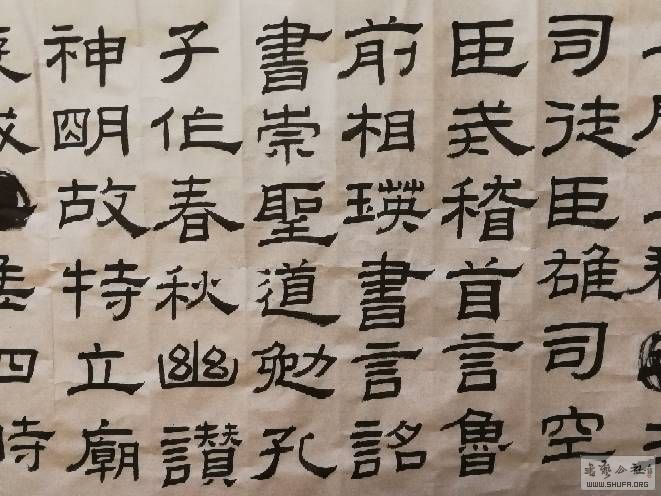 司徒臣雄司空
臣戒稽首言魯
前相瑛書言詔
書崇聖道勉孔
子作春秋幽讚
神朙故特立廟
四時
WWW.SHUFA.ORG